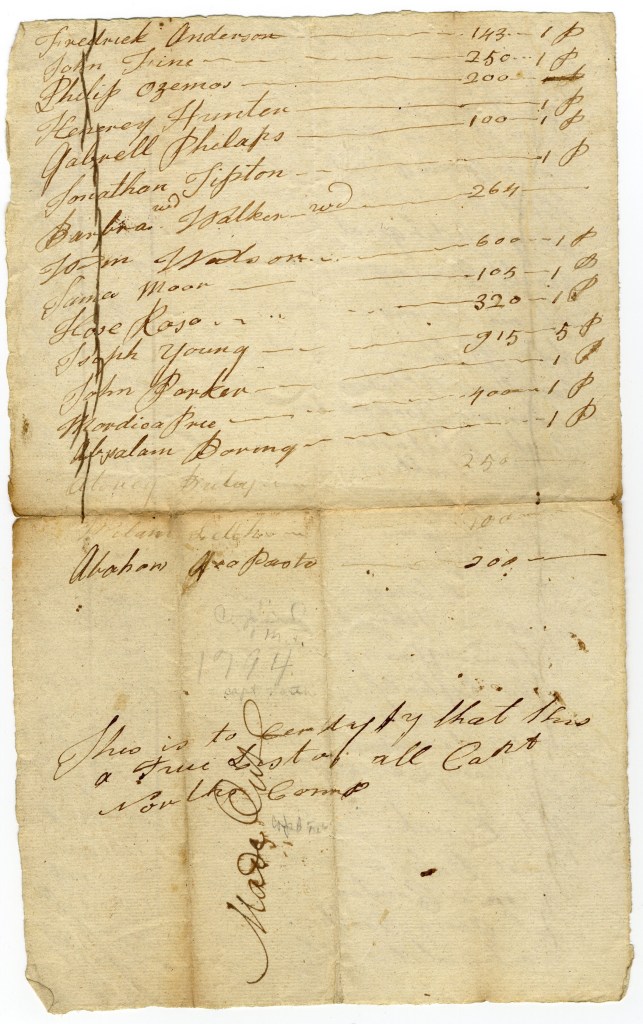 Fredrick Anderson 143 1 P
John Fine 250 1 P
Philip Ozemos 200
Henrey Hunter 1 P
Gabrell Phelaps 100 1 P
Jonathan Tipton 1 P
Barbra Walker wd 264
John Watson 600 1 P
James Moor 105 1 P
Hose Rose 320 1 P
Joseph Young 915 5 P
John Parker 1 P
Mordica Price 400 1 P
Absalam Boring 1 P
250
100
Abaham 200
1794
This is to that this
a True List of all Capt
Norths Comp
Made Out